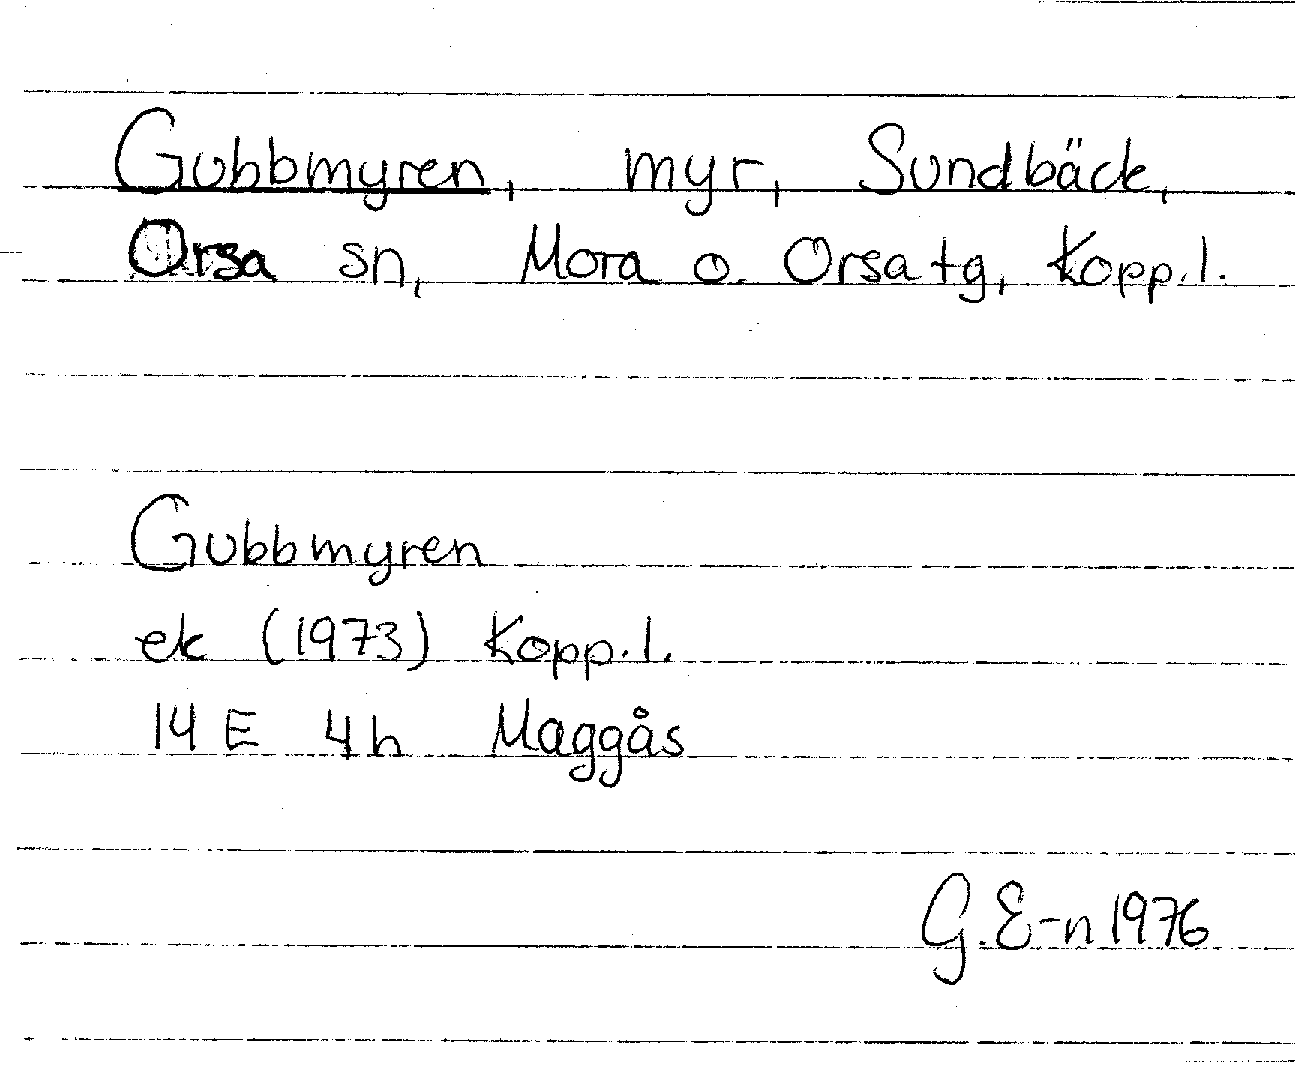 Gubbmyren, myr, Sundbäck,
Orsa sn, Mora o. Orsa tg, Kopp.l.
Gubbmyren
ek (1973) Kopp.l.
14 E 4h Maggås
G.E-n 1976